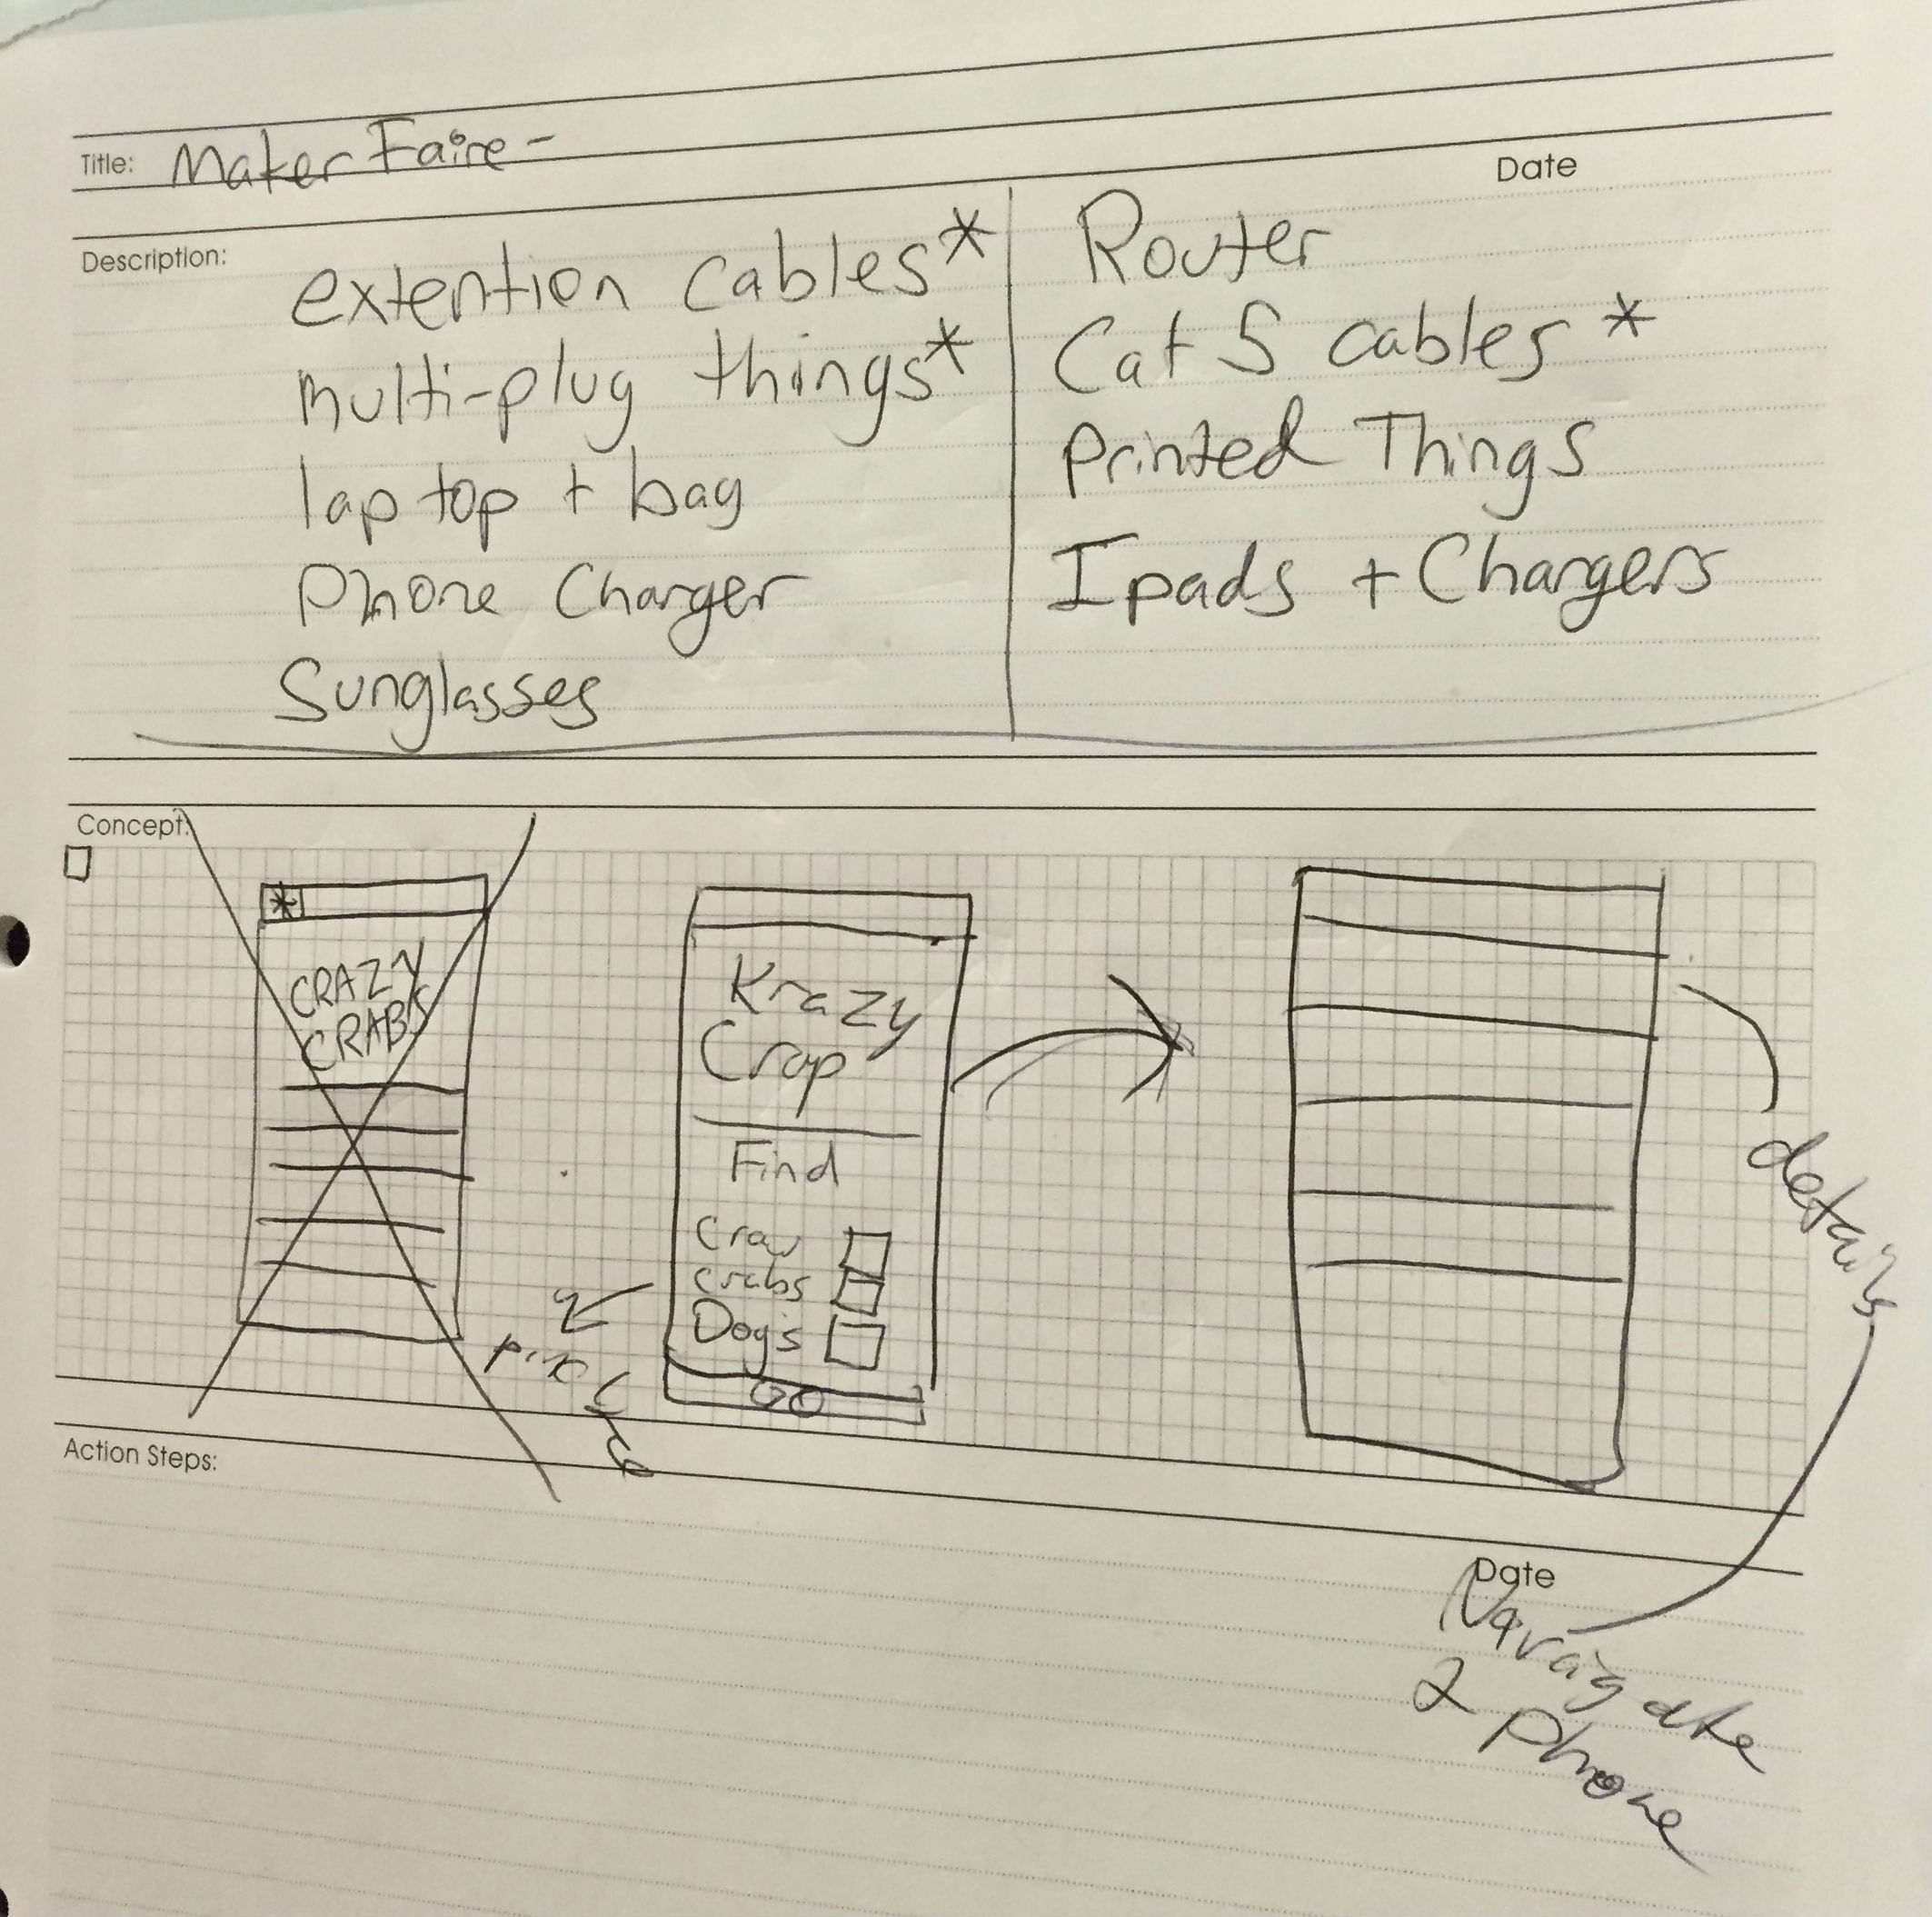 Title: Maker Faire -
Date
Description:
extention cables*
multi-plug things*
laptop + bag
Phone Charger
Sunglasses
Router
Cat 5 cables *
Printed Things
Ipads + Chargers
Concept:
*
CRAZY
CRABS
Krazy
Crap
Find
Craw
crabs
Dogs
GO
details
Action Steps:
Date
Navaigate
2 Phone